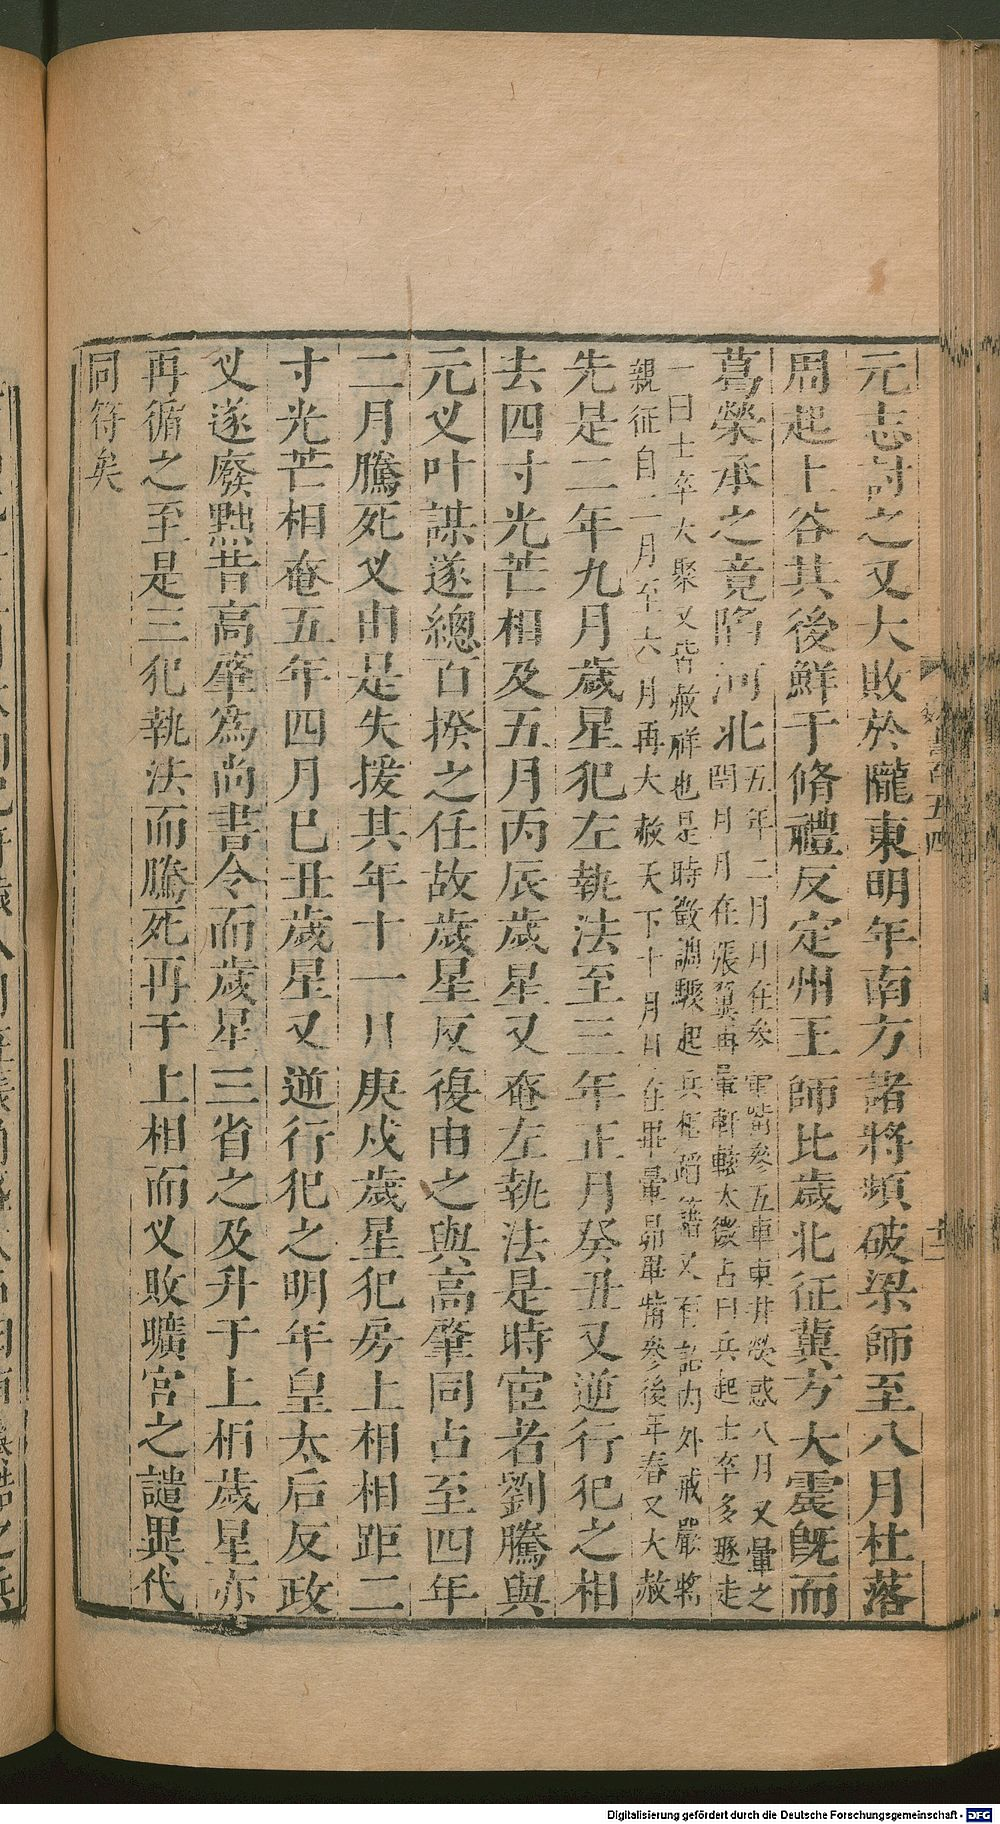 元志討之又大敗於隴東明年南方諸將頻破梁師至八月杜落
周起上谷其後鮮于脩禮反定州王師比歲北征冀方大震旣而
葛榮承之竟陷河北五年二月月在參
軍觜參五車東井熒惑八月又暈之
閏月月在張翼再暈軒轅太微占曰兵起士卒多遯走
一曰士卒大聚又皆赦祥也是時徵調驟起兵相蹈籍又有詔內外戒嚴將
親征自二月至六月再大赦天下十月月在畢暈昴畢觜參後年春又大赦
先是二年九月歲星犯左執法至三年正月癸丑又逆行犯之相
去四寸光芒相及五月丙辰歲星又奄左執法是時宦者劉騰與
元叉叶謀遂總百揆之任故歲星反復由之與高肇同占至四年
二月騰死叉由是失援其年十一月庚戌歲星犯房上相相距二
寸光芒相奄五年四月己丑歲星又逆行犯之明年皇太后反政
叉遂廢黜昔高肇爲尚書令而歲星三省之及升于上相歲星亦
再循之至是三犯執法而騰死再于上相而叉敗曠官之譴異代
同符矣
五四
十二
Digitalisierung gefördert durch die Deutsche Forschungsgemeinschaft - DFG